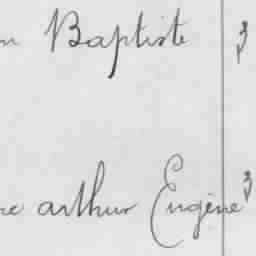 n Baptiste 3
re arthur Eugène 3